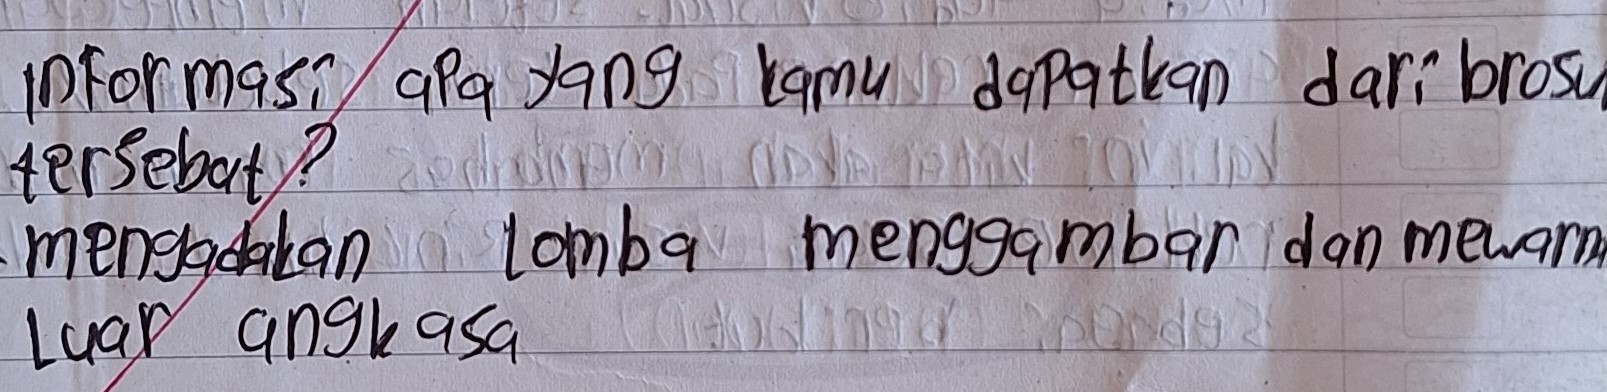 informasi apa yang kamu dapatkan dari brosu
tersebat?
mengadakan lomba menggambar dan mewarn
Luar angkasa